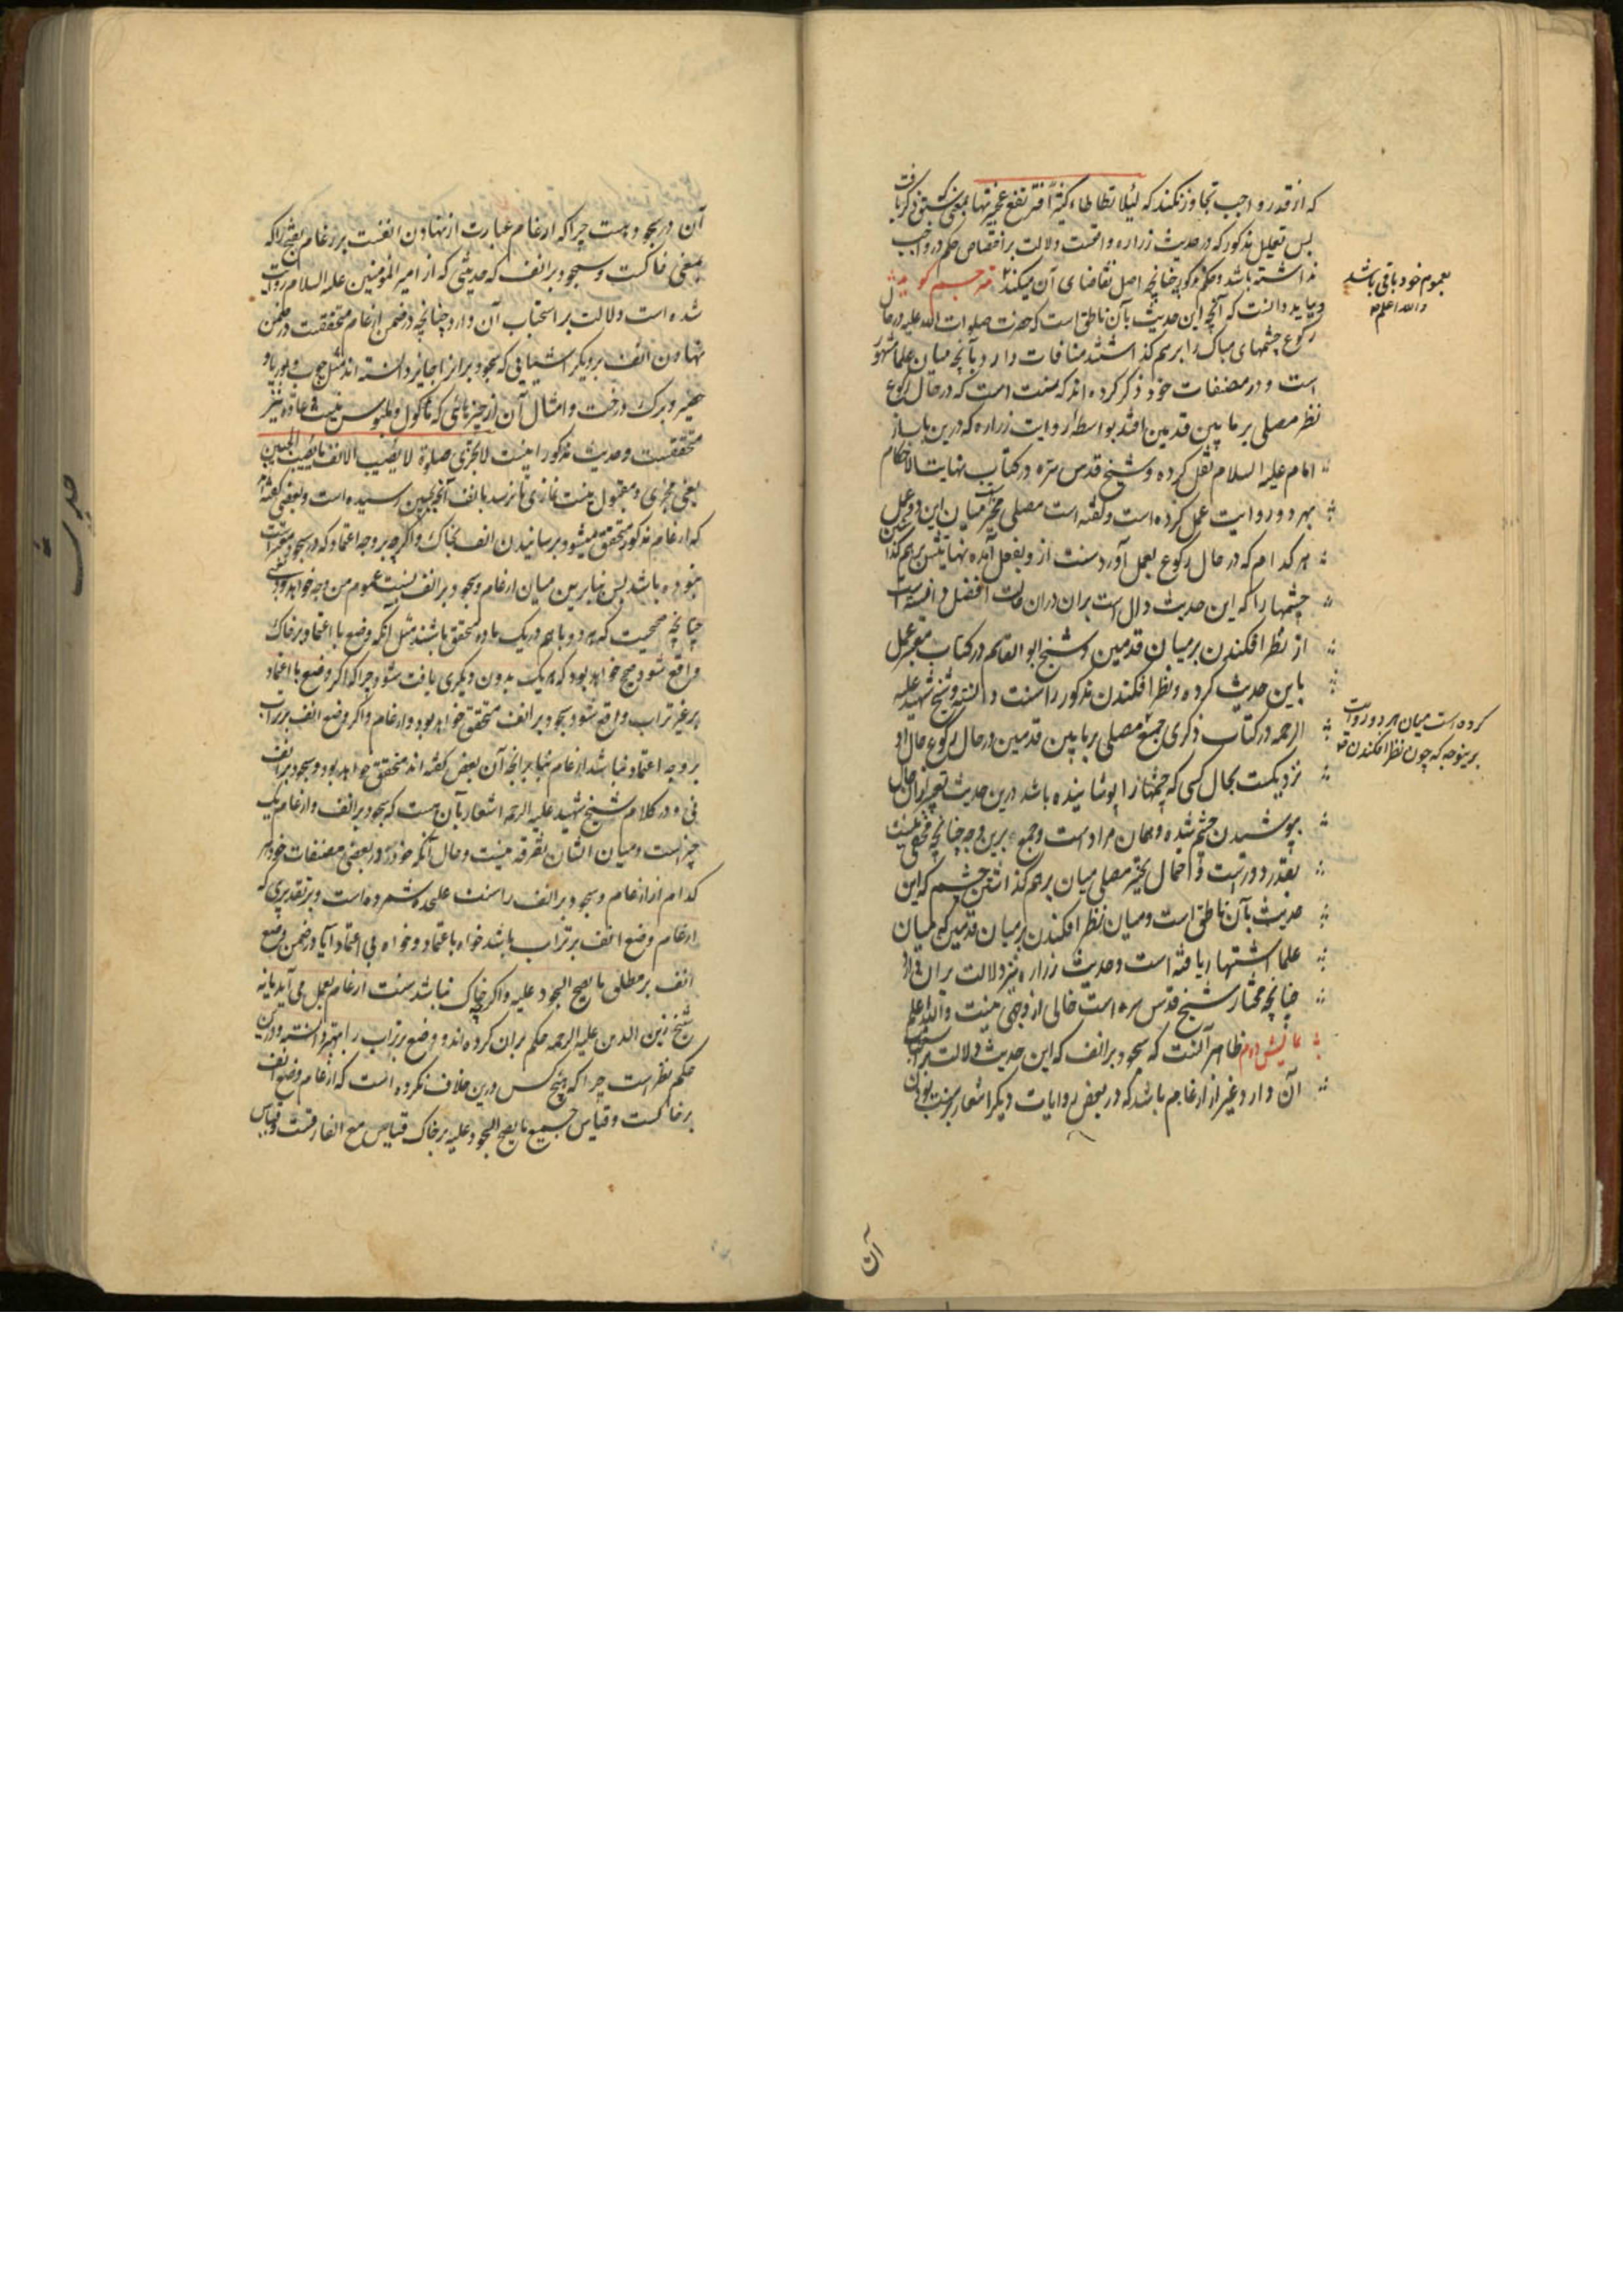 که از قدر واجب تجاوز نکند که لئلا تطاطاء کثیرا فترتفع عجیزتها بمعنی سبق ذکر یافت
پس تعلیل مذکور که در حدیث زراره واقعست دلالت بر اختصاص حکم در واجب
نداشته باشد و حکم مذکور چنانچه اصل تقاضای آن میکند مترجم گوید
بعموم خود باقی باشد
والله اعلم
و بباید دانست که آنچه این حدیث بآن ناطق است که حضرت صلوات الله علیه در حال
رکوع چشمهای مبارک را بر هم گذاشتند منافات دارد بآنچه میان علما مشهور
است و در مصنفات خود ذکر کرده‌اند که سنت است که در حال رکوع
نظر مصلی بر ما بین قدمین افتد بواسطه روایت زراره که درین باب از
امام علیه السلام نقل کرده و شیخ قدس سره در کتاب نهایت الاحکام
بهر دو روایت عمل کرده است و گفته است مصلی مخیر است میان این دو عمل
هر کدام که در حال رکوع بعمل آورد سنت از و بفعل آمده نهایتش بر هم گذاشتن
چشمها را که این حدیث دال است بران دران حالت افضل دانسته است
از نظر افکندن بر میان قدمین و شیخ ابو القاسم در کتاب معتبر عمل
باین حدیث کرده و نظر افکندن مذکور را سنت دانسته و شیخ شهید علیه
الرحمه در کتاب ذکری جمع
کرده است میان هر دو روایت
برینوجه که چون نظر افکندن
مصلی بر ما بین قدمین در حال رکوع حال او
نزدیکست بحال کسی که چشمها را پوشانیده باشد درین حدیث تعبیر ازان حال
بپوشیدن چشم شده و همان مراد است و جمع برین وجه چنانچه مخفی نیست
بعید و دورست و احتمال تخیر مصلی میان بر هم گذاشتن چشم که این
حدیث بآن ناطق است و میان نظر افکندن بر میان قدمین که میان
علما اشتهار یافته است و حدیث زراره نیز دلالت بران دارد
چنانچه مختار شیخ قدس سره است خالی از وجهی نیست والله اعلم
فایده‌اش دوم ظاهر آنست که سجود بر انف که این حدیث دلالت بر استحباب
آن دارد غیر از ارغام باشد که در بعض روایات دیگر اشعار بر سنت بودن
آن
آن در سجود هست چرا که ارغام عبارت از نهادن انفست بر رغام بفتح را که
بمعنی خاکست و سجود بر انف که حدیثی که از امیر المومنین علیه السلام روایت
شده است دلالت بر استحباب آن دارد چنانچه در ضمن ارغام متحققست در ضمن
نهادن انف بر دیگر اشیائی که سجود بر آنرا جایز دانسته‌اند مثل چوب و بوریا و
حصیر و برگ درخت و امثال آن از چیزهائی که ماکول و ملبوس نیست عادة نیز
متحققست و حدیث مذکور اینست لا تجزی صلوة لا یصیب الانف ما یصیب الجبین
یعنی مجزی و مقبول نیست نمازی تا نرسد بانف آنچه بجبین رسیده است و بعضی گفته‌اند
که ارغام مذکور متحقق میشود برسانیدن انف بخاک و اگر چه بر وجه اعتماد که در سجود معتبر است
نبوده باشد پس بنابرین میان ارغام و سجود بر انف نسبت عموم من وجه خواهد بود یعنی
چنانچه صحیحست که هر دو با هم در یک ماده متحقق باشند مثل آنکه وضع با اعتماد بر خاک
واقع شود صحیح خواهد بود که هر یک بدون دیگری یافت شود چرا که اگر وضع با اعتماد
بر غیر تراب واقع شود سجود بر انف متحقق خواهد بود و ارغام و اگر وضع انف بر تراب
بر وجه اعتماد نباشد ارغام بنابر آنچه آن بعض گفته‌اند متحقق خواهد بود و سجود بر انف
نی و در کلام شیخ شهید علیه الرحمه اشعار بآن هست که سجود بر انف و ارغام یک
چیز است و میان ایشان تفرقه نیست و حال آنکه خود در بعضی مصنفات خود هر
کدام از ارغام و سجود بر انف را سنت علیحده شمرده است و بر تقدیری که
ارغام وضع انف بر تراب باشد خواه با اعتماد و خواه بی اعتماد آیا در ضمن وضع
انف بر مطلق ما یصح السجود علیه و اگر چه خاک نباشد سنت ارغام بعمل می‌آید یا نه
شیخ زین الدین علیه الرحمه حکم بران کرده‌اند و وضع بر تراب را بهتر دانسته و درین
حکم نظر است چرا که هیچ کس درین خلاف نکرده است که ارغام وضع انف
بر خاکست و قیاس جمیع ما یصح السجود علیه بر خاک قیاس مع الفارقست و قیاس
حدیث